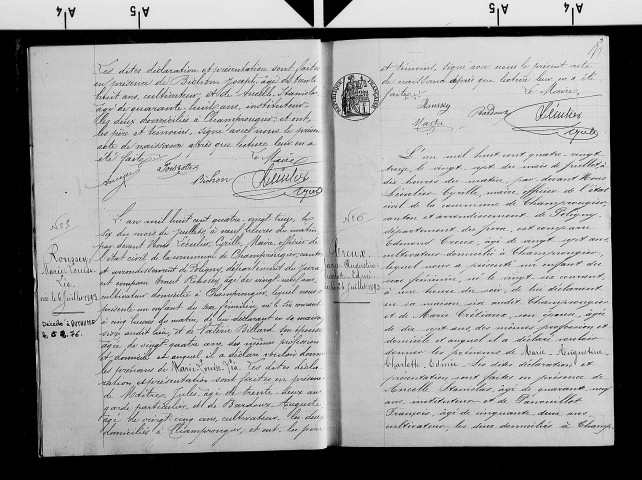 Les dites déclaration et présentation sont faites
en présence de Bichon Joseph, âgé de trente
huit ans, cultivateur, et de Ancelle Stanislas
âgé de quarante-huit ans, instituteur
les deux domiciliés à Champrougier; et ont
les père et témoins, signé avec nous le présent
acte de naissance après que lecture leur en a
été faite. Le Maire
Bichon Léculier Cyrille
No 5
Roussey
Marie Louise
Lia
née le 6 juillet 1893
Décédée à
L'an mil huit cent quatre-vingt treize, le
six du mois de juillet, à neuf heures du matin
par devant Nous Léculier Cyrille, Maire, officier de
l'état civil de la commune de Champrougier, canton
et arrondissement de Poligny, département du Jura
est comparu Ernest Roussey, âgé de vingt neuf ans,
cultivateur domicilié à Champrougier, lequel nous a
présenté un enfant du sexe féminin, né le six courant
à cinq heures du matin, de lui déclarant en sa maison
sise audit lieu, et de Valérie Billard son épouse
âgée de vingt quatre ans des mêmes profession
et domicile et auquel il a déclaré vouloir donner
les prénoms de Marie Louise Lia. Les dites décla-
ration et présentation sont faites en présence
de Jules, âgé de trente-deux ans
garde particulier, et de Bardoux Auguste
âgé de vingt-cinq ans, cultivateur. Les deux
domiciliés à Champrougier, et ont, les père
et témoins, signé avec nous le présent acte
de naissance après que lecture leur en a été
faite. Le Maire,
Roussey Bardoux Léculier
Cyrille
No 6
Creux
Marie Augustine
Charlotte Edmée
juillet 1893
L'an mil huit cent quatre-vingt
treize, le vingt-sept du mois de juillet, à
dix heures du matin, par devant Nous
Léculier Cyrille, maire, officier de l'état
civil de la commune de Champrougier,
canton et arrondissement de Poligny,
département du Jura, est comparu
Edmond Creux, âgé de vingt sept ans,
cultivateur, domicilié à Champrougier,
lequel nous a présenté un enfant du
sexe féminin, né le vingt
à heures du soir, de lui déclarant
en sa maison sise audit Champrougier
et de Marie Crétiaux, son épouse, âgée
de dix sept ans, des mêmes profession et
domicile et auquel il a déclaré vouloir
donner les prénoms de Marie Augustine
Charlotte Edmée. Les dites déclaration et
présentation sont faites en présence de
Ancelle Stanislas, âgé de quarante huit
ans, instituteur et de
François, âgé de cinquante deux ans,
cultivateur, les deux domiciliés à Champ